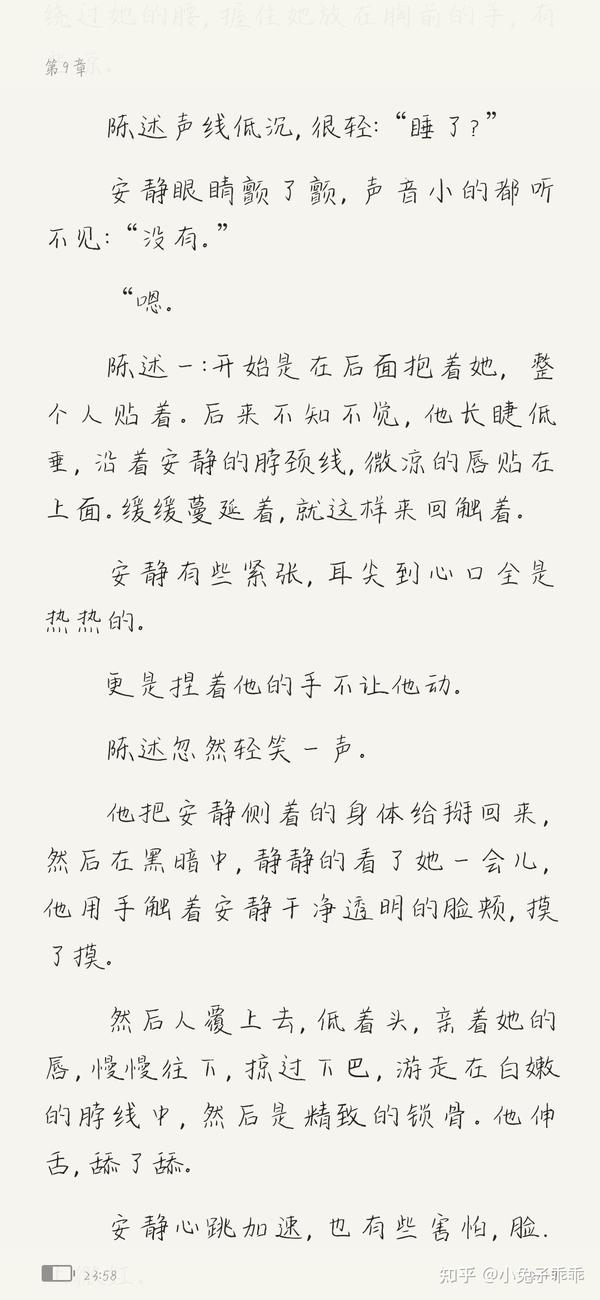 绕过她的腰,握住她放在胸前的手,有
第9章
陈述声线低沉,很轻:“睡了?”
安静眼睛颤了颤,声音小的都听
不见:“没有。”
“嗯。
陈述一:开始是在后面抱着她, 整
个人贴着。后来不知不觉,他长睫低
垂,沿着安静的脖颈线,微凉的唇贴在
上面。缓缓蔓延着,就这样来回触着。
安静有些紧张,耳尖到心口全是
热热的。
更是捏着他的手不让他动。
陈述忽然轻笑一声。
他把安静侧着的身体给掰回来,
然后在黑暗中,静静的看了她一会儿,
他用手触着安静干净透明的脸颊,摸
了摸。
然后人覆上去,低着头,亲着她的
唇,慢慢往下,掠过下巴,游走在白嫩
的脖线中,然后是精致的锁骨。他伸
舌,舔了舔。
安静心跳加速,也有些害怕,脸.
23:58
知乎 @小兔子乖乖